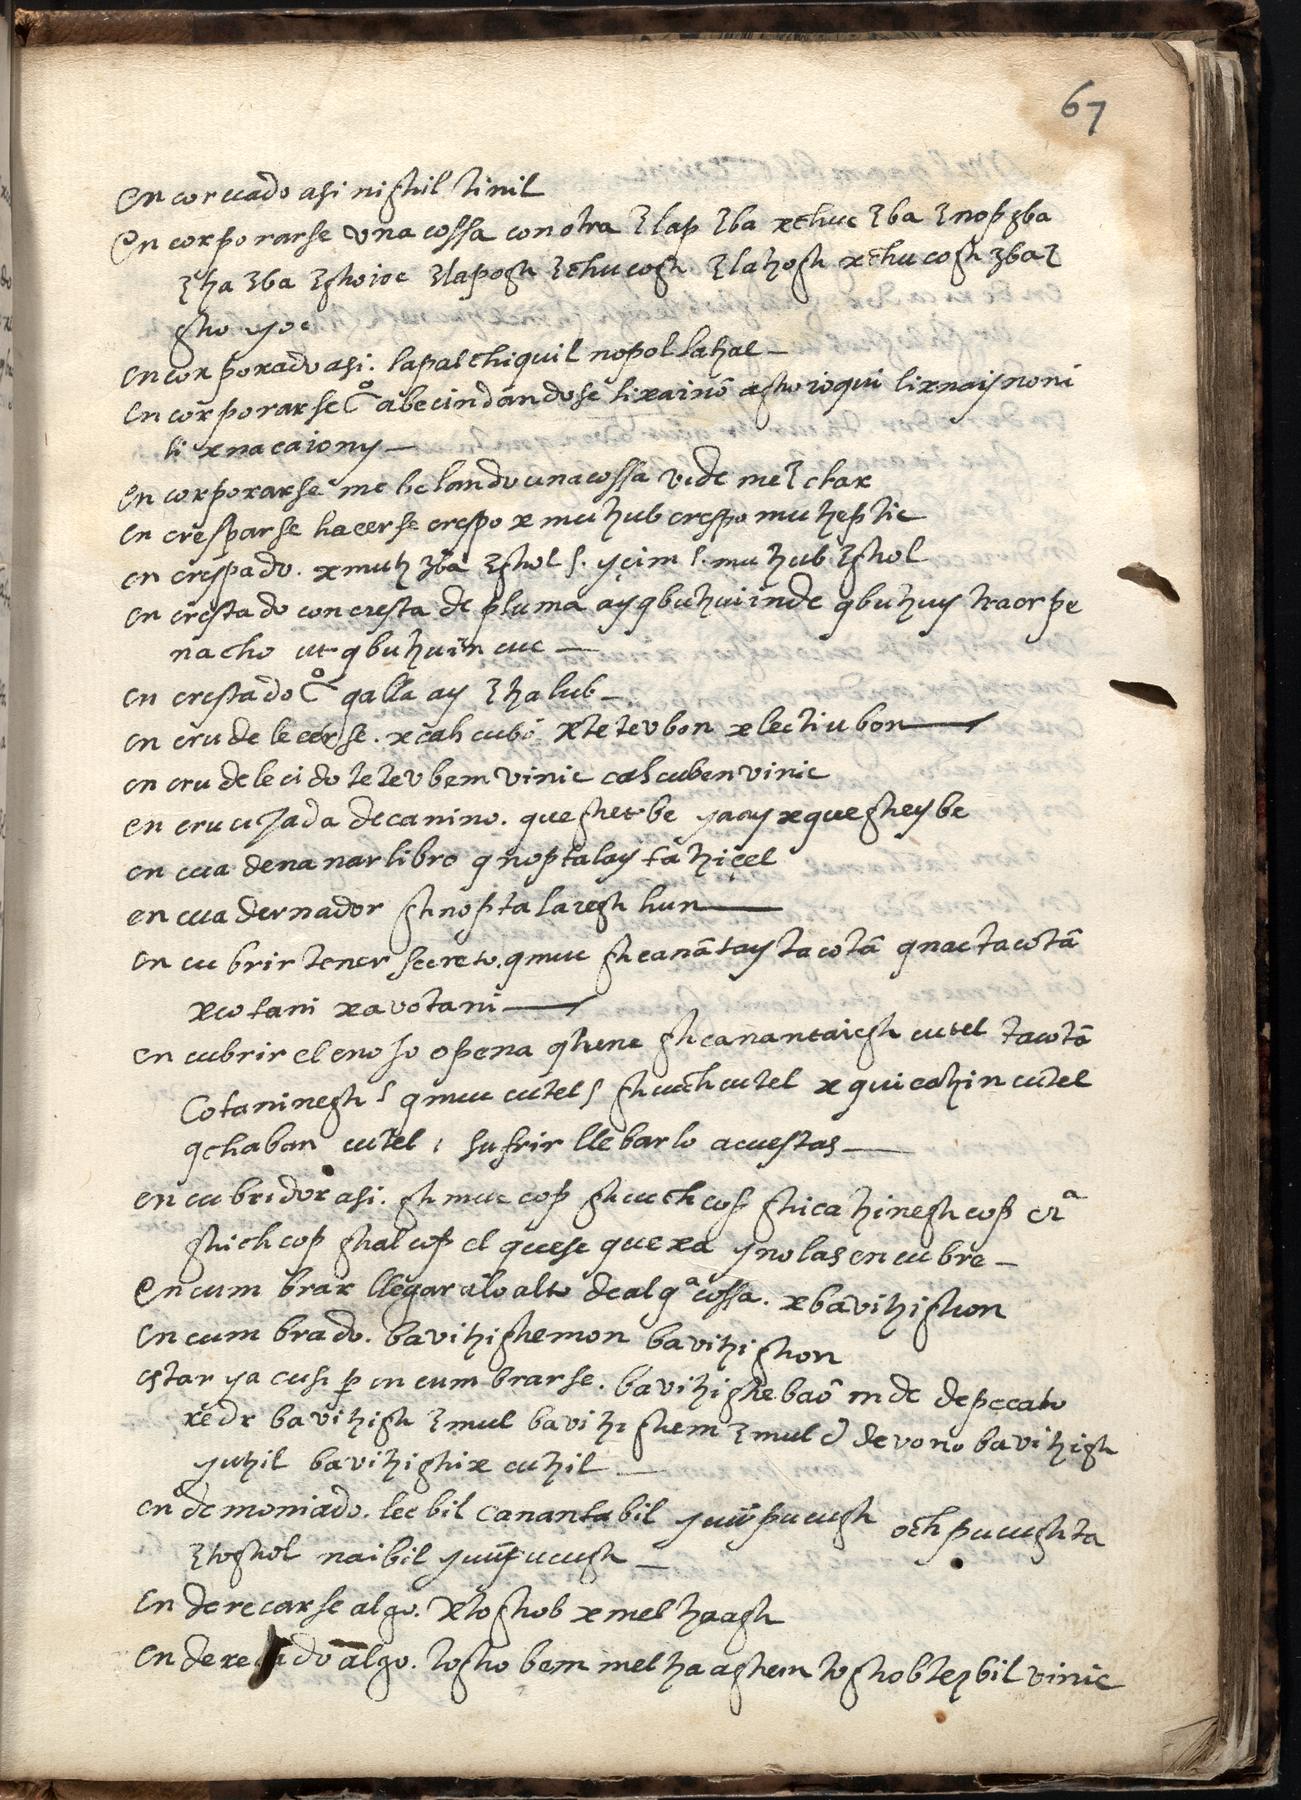 67
en corcuado asi nighil tinil
en corporarse vna cossa con otra ɜlap ɜba xchuc ɜba ɜnop ɜba
ɜtza ɜba ɜghoioc ɜlapogh ɜchucogh ɜlatzogh xchucogh ɜba ɜ
gho yoc
en corporado asi. lapal chiquil nopol latzal
en corporarse abecindandose lixainõ xghoioqui lixnaiynoni
li xnacaiony
en corporarse mezclando una cossa vide meɜclar
en cresparse hacerse crespo xmutzub crespo mutzeptic
en crespado. xmutz ɜba ɜghol s. yçim s. mutzub ɜghol
en crestado con cresta de pluma ay qbutzui inde qbutzuy traer pe
nacho ut qbutzuin cuc
en crestado galla ay ɜtzalub
en crudelecerse. xcah cubõ xteteubon xlectiubon
en crudelecido teteubem vinic cahcuben vinic
en crucijada de canino. queghet be yaay xqueghey be
en cuadenanar libro qnoptalay ta hiçel
en cuadernador ghnoptalaregh hun
en cubrir tener secreto. qmuc ghcanãtay tacotã qnactacotã
xcotani xavotani
en cubrir el enojo o pena qhunc ghcanantaiegh cutel tacotã
cotaninegh s qmuc cutel s ghcuch cutel xquicatzin cutel
qchaban cutel, sufrir llebarlo acuestas
en cubridor asi. ghmuc cop ghcuch cop ghicatzinegh cop cɜª
ghich cop ghal cop el que se quexa y no las encubre
en cumbrar llegar a lo alto de algª cossa. xbavitzighon
en cumbrado. bavitzighemon bavitzighon
estar ya cusi p encumbrarse. bavitzighebaõ inde de peccato
redr bavitzigh ɜmul bavitzighem ɜmul de vono bavitzigh
yutzil bavitzighix cutzil
en demoniado. lecbil canantabil pucugh och pucugh ta
ɜtoghol naibil pucugh
en derecarse algo. xtoghob xmeltzaagh
en dere do algo. toghobem meltzaaghem toghobteɜbil vinic